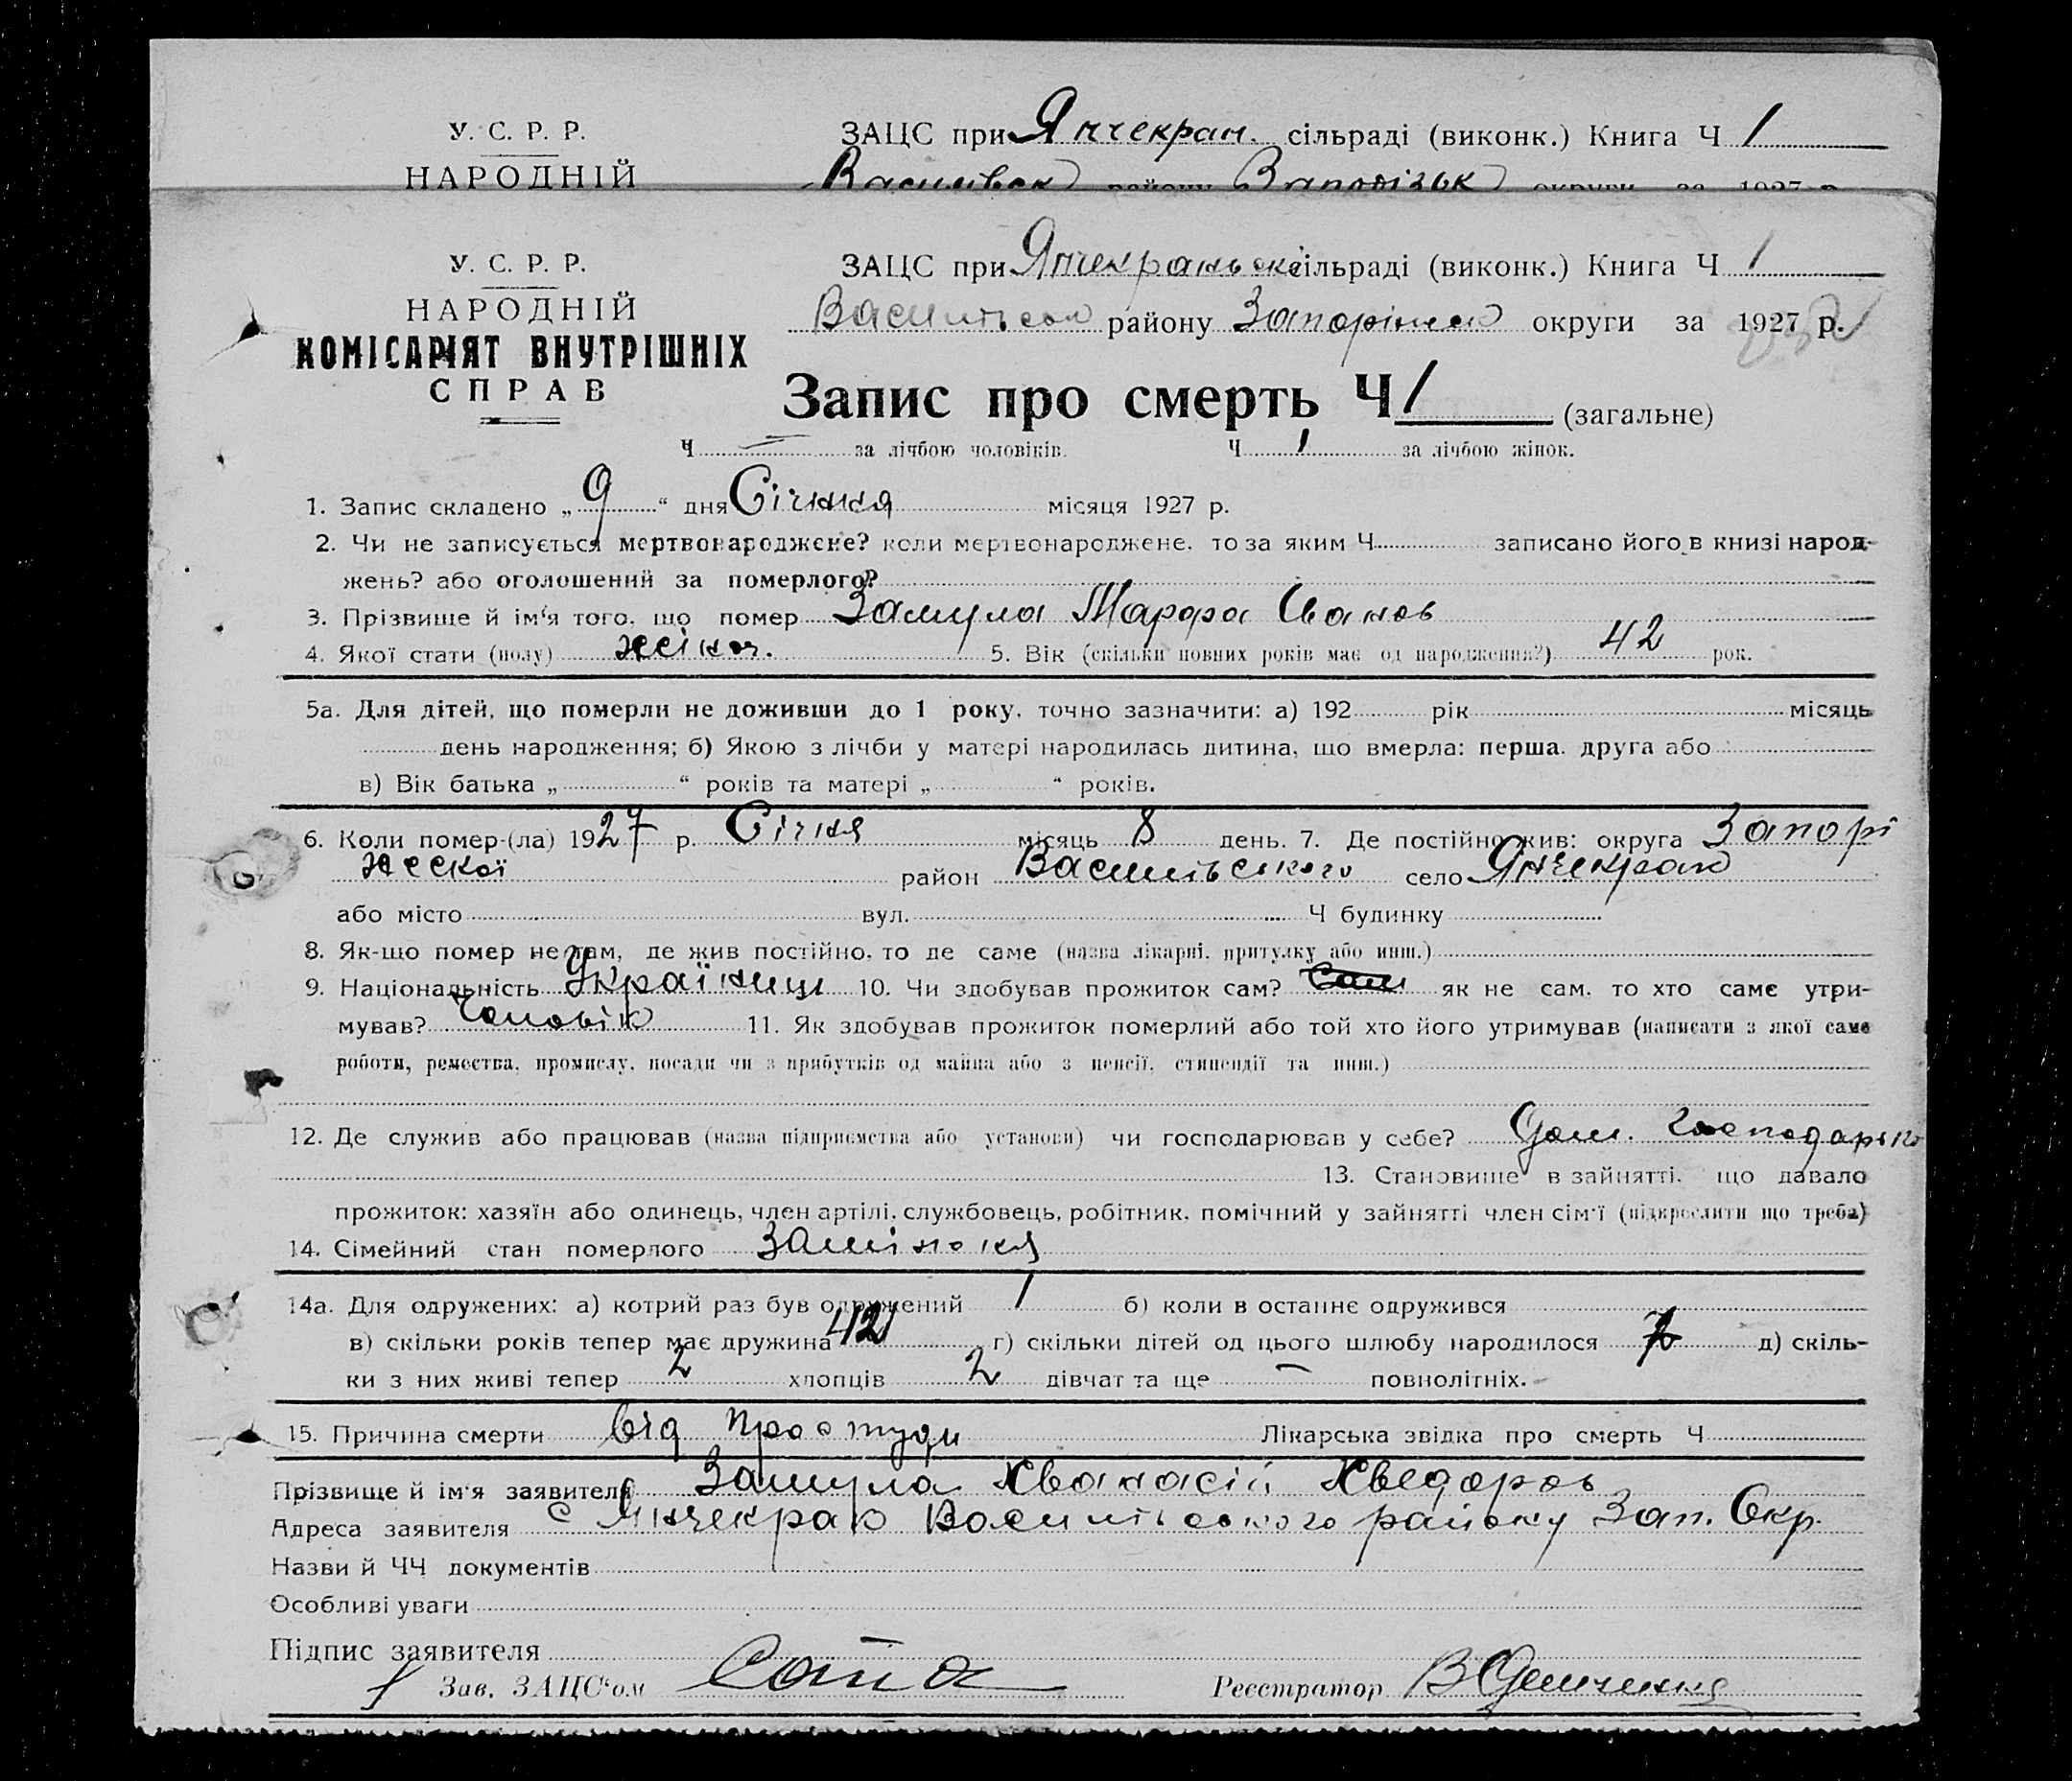 У. С. Р. Р.
НАРОДНІЙ
ЗАЦС при Янчекран. сільраді (виконк.) Книга Ч 1
Василівськ району Запоріжк округи за 1927 р.
У. С. Р. Р.
НАРОДНІЙ
КОМІСАРІЯТ ВНУТРІШНІХ
СПРАВ
ЗАЦС при Янчекраньск сільраді (виконк.) Книга Ч 1
району округи за 1927 р.
Запис про смерть Ч 1 (загальне)
Ч — за лічбою чоловіків. Ч 1 за лічбою жінок.
1. Запис складено „ 9 “ дня Січння місяця 1927 р.
2. Чи не записується мертвонароджене? коли мертвонароджене, то за яким Ч записано його в книзі народ-
жень? або оголошений за померлого?
3. Прізвище й ім‘я того, що помер Замула Марфа Іванов
4. Якої стати (полу) жіноч. 5. Вік (скільки повних років має од народження?) 42 рок.
5а. Для дітей, що померли не доживши до 1 року, точно зазначити: а) 192 рік місяць
день народження; б) Якою з лічби у матері народилась дитина, що вмерла: перша, друга або
в) Вік батька „ “ років та матері „ “ років.
6. Коли помер-(ла) 1927 р. Січня місяць 8 день. 7. Де постійно жив: округа Запорі
жської район Василівського село Янчекрак
або місто вул. Ч будинку
8. Як-що помер не там, де жив постійно, то де саме (назва лікарні, притулку або инш.)
9. Національність Українець 10. Чи здобував прожиток сам? Сам як не сам, то хто саме утри-
мував? Чоловік 11. Як здобував прожиток померлий або той хто його утримував (написати з якої саме
роботи, ремества, промислу, посади чи з прибутків од майна або з пенсії, стипендії та инш.)
12. Де служив або працював (назва підприємства або установи) чи господарював у себе? Дом. господарьк
13. Становище в зайнятті, що давало
прожиток: хазяїн або одинець, член артілі, службовець, робітник, помічний у зайнятті член сім‘ї (підкреслити що треба)
14. Сімейний стан померлого
14а. Для одружених: а) котрий раз був одружений 1 б) коли в останнє одружився
в) скільки років тепер має дружина 42 г) скільки дітей од цього шлюбу народилося 7 д) скіль-
ки з них живі тепер 2 хлопців 2 дівчат та ще — повнолітніх.
15. Причина смерти від простуди Лікарська звідка про смерть Ч
Прізвище й ім‘я заявителя Замула Хванасій Хведоров
Адреса заявителя с Янчекрак Василівського району Зап. Окр.
Назви й ЧЧ документів
Особливі уваги
Підпис заявителя
Зав. ЗАЦС‘ом Реєстратор